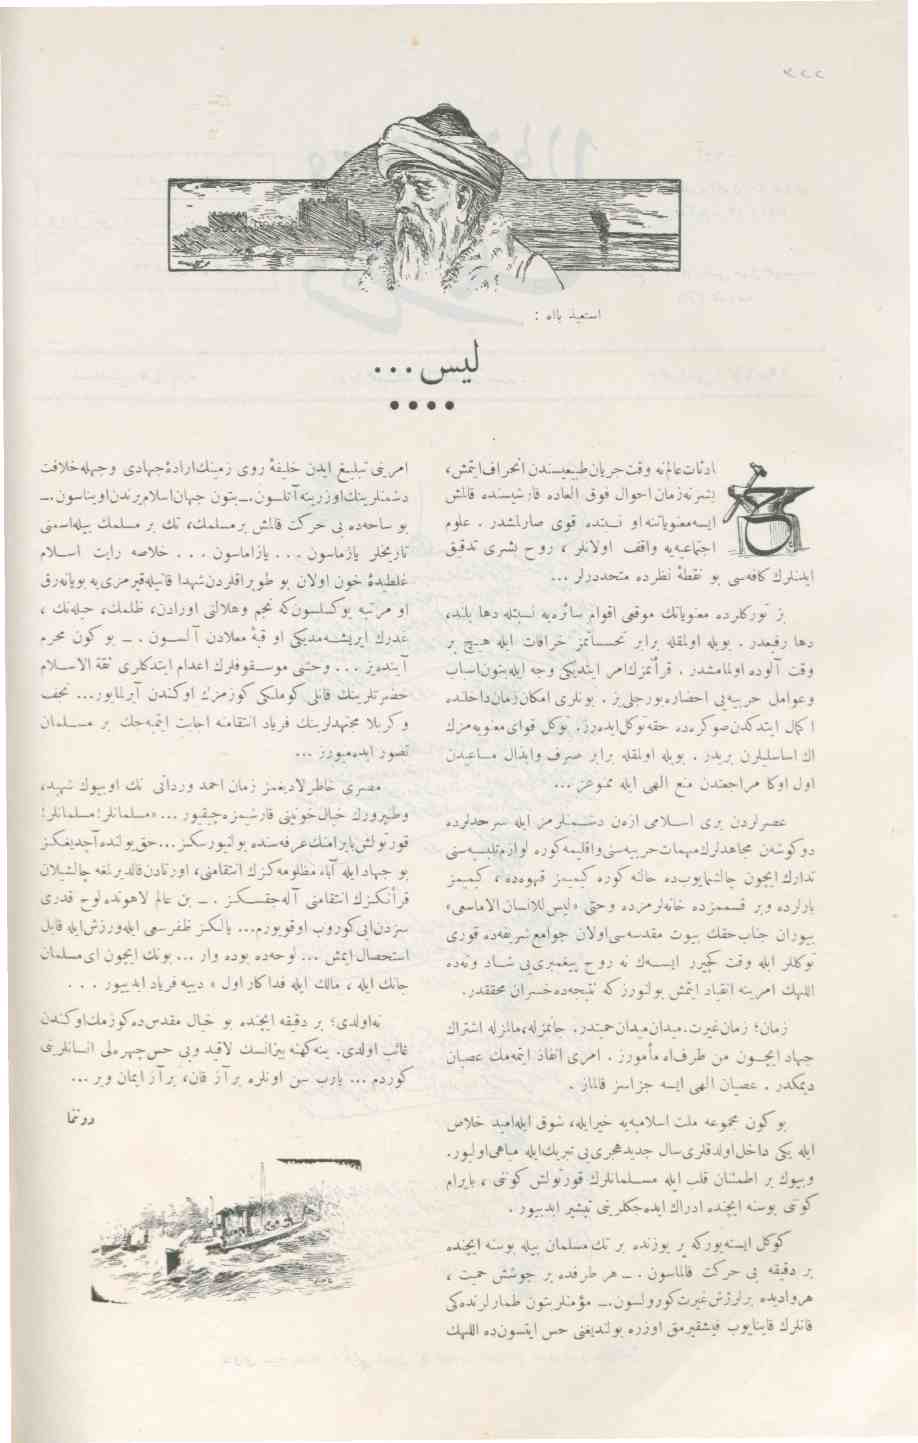 استعیذ بالله :
لیس ...
ادثات عالم نه وقت جریان طبیعیسندن انحراف ایتمش،
بشر نه زمان احوال فوق العاده قارشیسنده قالمش
ایسه معنویاتنه او نسبتده قوی صارلمشدر . علوم
اجتماعیه‌یه واقف اولانلر ، روح بشری تدقیق
ایدنلرك كافه‌سی بو نقطۀ نظرده متحددرلر ...
بز توركلرده معنویاتك موقعی اقوام سائره‌یه نسبتله دها بلند،
دها رفیعدر . بویله اولمقله برابر تحسساتمز خرافات ایله هیچ بر
وقت آلوده اولمامشدر . قرآنمزك امر ایتدیكی وجه ایله بتون اسباب
وعوامل حربیه‌یی احضاره بورجلی‌یز . بونلری امكان زمان داخلنده
اكمال ایتدكدن صوكره‌ده حقه توكل ایده‌رز. توكل قوای معنویه‌مزك
اك اساسلیلرن بریدر . بویله اولمقله برابر صرف وابذال مساعیدن
اول اوكا مراجعتدن منع الهی ایله ممنوعز ...
عصرلردن بری اسلامی ازه‌ن دشمنلرمز ایله سرحدلرده
دوكوشه‌ن مجاهدلرك مهمات حربیه‌سنی واقلیمه كوره لوازم تلبسیه‌سنی
تدارك ایچون چالشمایوب‌ده حالنه كوره كیمیمز قهوه‌ده ، كیمیمز
بارلرده وبر قسممزده خانه‌لرمزده وحتی «لیس للانسان الاماسعی»
بیوران جناب حقك بیوت مقدسه‌سی اولان جوامع شریفه‌ده قوری
توكللر ایله وقت كچیرر ایسه‌ك نه روح پیغمبری‌یی شاد ونه‌ده
اللهك امرینه انقیاد ایتمش بولنورز كه نتیجه‌ده خسران محققدر.
زمان؛ زمان غیرت.میدان میدان حمیتدر. جانمزله، مالمزله اشتراك
جهاد ایچون من طرف الله مأمورز . امری انفاذ ایتمه‌مك عصیان
دیمكدر . عصیان الهی ایسه جزاسز قالماز .
بو كون مجموعه ملت اسلامیه‌یه خیر ایله، شوق ایله امید خلاص
ایله یكی داخل اولدقلری سال جدید هجری‌یی تبریك ایله مباهی اولیور.
وبیوك بر اطمئنان قلب ایله مسلمانلرك قورتولش كوننی ، بایرام
كوننی بوسنه ایچنده ادراك ایده‌جكلرینی تبشیر ایدییور .
كوكل ایسته‌یوركه یر یوزنده بر تك مسلمان بیله بوسنه ایچنده
بر دقیقه بی حركت قالماسون . ــ هر طرفده بر جوشش حمیت ،
هروادیده برلرزش غیرت كورولسون.ــ مؤمنلر بتون طمارلرنده‌كی
قانلرك قاینایوب فیشقیرمق اوزره بولندیغنی حس ایتسون‌ده اللهك
امرینی تبلیغ ایدن خلیفۀ روی زمینك ارادۀ جهادی وجهله خلافت
دشمنلرینك اوزرینه آتلسون.ــ بتون جهان اسلام یرندن اویناسون.ــ
بو ساحه‌ده بی حركت قالمش بر مسلمك، تك بر مسلمك بیله اسمنی
تاریخلر یازماسون ... یازاماسون ... خلاصه رایت اسلام
غلطیدۀ خون اولان بو طوپراقلردن شهدا قانیله قیرمزی‌یه بویانه‌رق
او مرتبه یوكسلسون كه نجم وهلالنی اورادن، ظلمك، حیله‌نك ،
غدرك ایریشه‌مدیكی او قبۀ معلادن آلسون . ــ بو كون محرم
آیندیز ... وحشی موسقوفلرك اعدام ایتدكلری ثقة الاسلام
حضرتلرینك قانلی كوملكی كوزمزك اوكندن آیرلمایور... نجف
وكربلا مجتهدلرینك فریاد انتقامنه اجابت ایتمیه‌جك بر مسلمان
تصور ایده‌میورز ...
مصری خاطرلادیغمز زمان احمد وردانی نك اوبیوك شهید،
وطنپرورك خیال خونینی قارشیمزه چیقیور ... «مسلمانلر! مسلمانلر!
قورتولش بایرامنك عرفه‌سنده بولنیورسكز... حق یولنده آچدیغكز
بو جهاد ایله آباء مظلومه‌كزك انتقامنی، اورتادن قالدیرلمغه چالشیلان
قرآنكزك انتقامنی آله‌جقسكز . ــ بن عالم لاهوتده لوح قدری
سزدن ایی كوروب اوقویورم... یالكز ظفر سعی ایله ورزش ایله قابل
استحصال ایمش ... لوحه‌ده بوده وار ... بونك ایچون ای مسلمان
جانك ایله ، مالك ایله فداكار اول » دییه فریاد ایدییور . . .
نه اولدی؛ بر دقیقه ایچنده بو خیال مقدس‌ده كوزمك اوكندن
غائب اولدی. ینه كهنه بیزانسك لاقید وبی حس چهره‌لی انسانلرینی
كوردم ... یارب سن اونلره بر آز قان، بر آز ایمان ویر ...
رونما